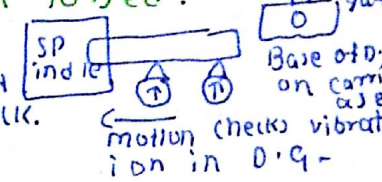 SP
indle
Base of D.
on carri
ase
ck.
motion checks vibrat
ion in D.G-